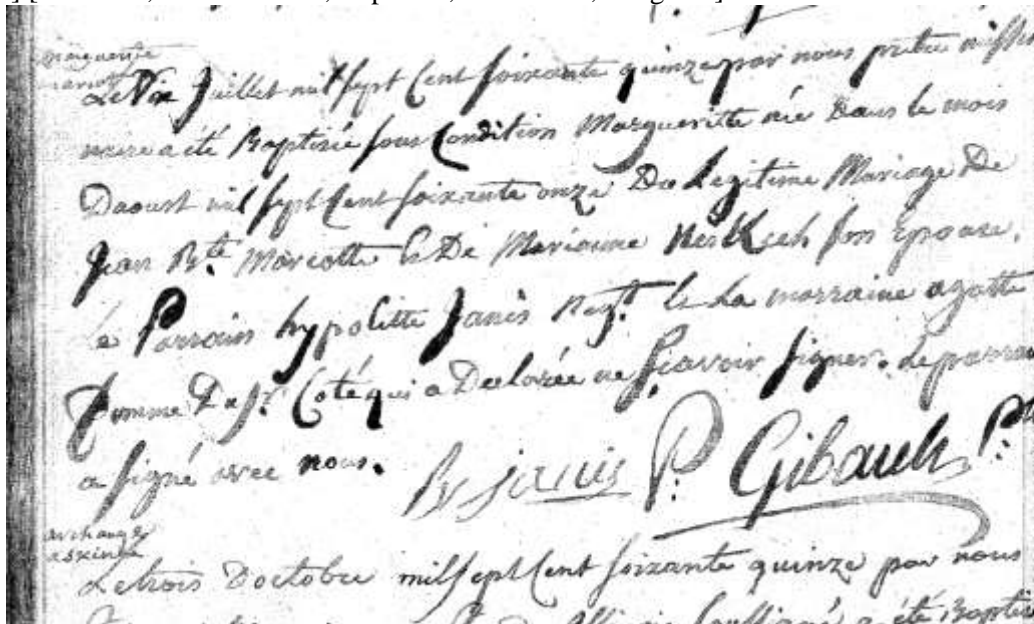 marguerite
marcot
juillet mil sept Cent soixante quinze par nous prêtre missio
naire a été Baptisée sous Condition Marguerite née Dans le mois
Daoust mil sept Cent soixante onze Du Legitime Mariage De
Jean Bte Marcotte & De Marianne Neskech son Epouse.
Le Parrain hypolitte Janis Negt. & La marraine agatte
femme De Sr. Coté qui a Declarée ne Scavoir signer. le parrain
a signé avec nous. janis P. Gibault Ptr
archange
askinne
Le trois D'octobre mil sept Cent soixante quinze par nous
soussigné a été Baptis